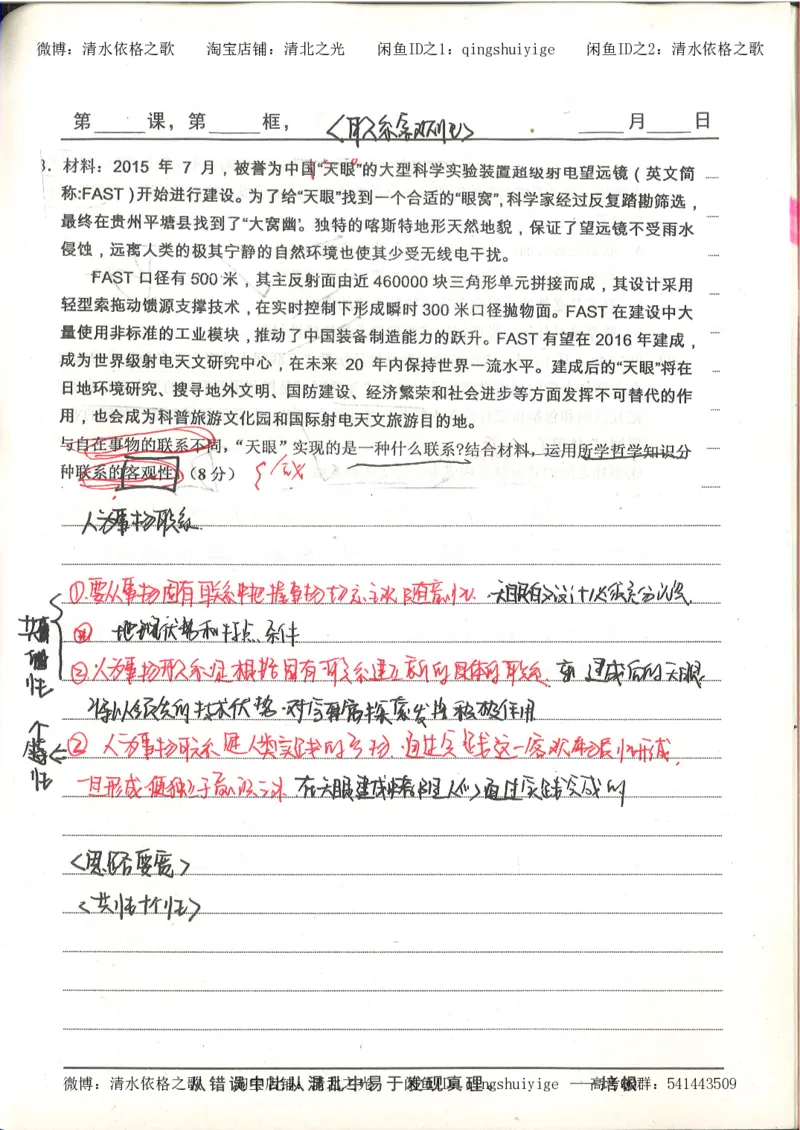 微博：清水依格之歌 淘宝店铺：清北之光 闲鱼ID之1：qingshuiyige 闲鱼ID之2：清水依格之歌
第 课，第 框， 〈联系客观性〉 月 日
3．材料：2015 年 7 月，被誉为中国“天眼”的大型科学实验装置超级射电望远镜（英文简
称:FAST)开始进行建设。为了给“天眼”找到一个合适的“眼窝”,科学家经过反复踏勘筛选，
最终在贵州平塘县找到了“大窝幽”。独特的喀斯特地形天然地貌，保证了望远镜不受雨水
侵蚀，远离人类的极其宁静的自然环境也使其少受无线电干扰。
FAST 口径有 500 米，其主反射面由近 460000 块三角形单元拼接而成，其设计采用
轻型索拖动馈源支撑技术，在实时控制下形成瞬时 300 米口径抛物面。FAST 在建设中大
量使用非标准的工业模块，推动了中国装备制造能力的跃升。FAST 有望在 2016 年建成，
成为世界级射电天文研究中心，在未来 20 年内保持世界一流水平。建成后的“天眼”将在
日地环境研究、搜寻地外文明、国防建设、经济繁荣和社会进步等方面发挥不可替代的作
用，也会成为科普旅游文化园和国际射电天文旅游目的地。
与自在事物的联系不同，“天眼”实现的是一种什么联系?结合材料，运用所学哲学知识分
种联系的客观性。（8 分）
人为事物联系
①要从事物固有联系中把握事物，切忌主观随意性. 天眼
地理优势和特点、条件
共
性
②人为事物联系是根据固有联系建立新的具体的联系 建成后的天眼
将以领先的技术优势，对宇宙探索发挥积极作用
个
性
② 人为事物联系是人类实践的产物，通过实践这一客观 形成，
一旦形成便独立于意识之外 在天眼建成 人们通过实践 成的
〈思路要宽〉
〈共性+个性〉
微博：清水依格之歌 淘宝店铺：清北之光 闲鱼ID：qingshuiyige 高考 群：541443509
从错误中比从混乱中易于发现真理。 ——培根